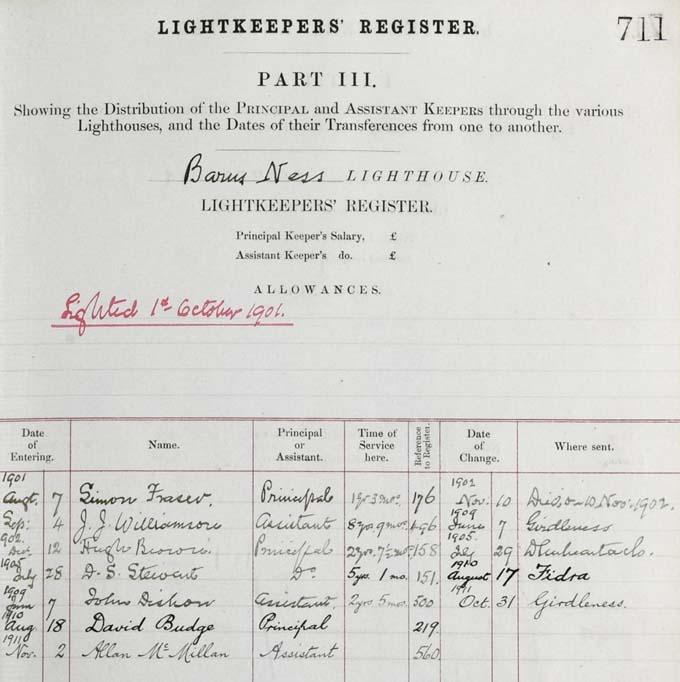 LIGHTKEEPERS' REGISTER.
711
PART III.
Showing the Distribution of the PRINCIPAL and ASSISTANT KEEPERS through the various
Lighthouses, and the Dates of their Transferences from one to another.
Barns Ness LIGHTHOUSE.
LIGHTKEEPERS' REGISTER.
Principal Keeper's Salary, £
Assistant Keeper's do. £
ALLOWANCES.
Lighted 1st October 1901.
Date of Entering. Name. Principal or Assistant. Time of Service here. Reference to Register. Date of Change. Where sent.
1901 Augt. 7 Simon Fraser. Principal 1 yr 3 mos. 176 1902 Nov: 10 Died on 10 Nov: 1902.
Sep: 4 J. J. Williamson Assistant 8 yrs 9 mos. 496 1909 June 7 Girdleness
1902. Dec. 12 Hugh Brown. Principal 2 yrs. 7½ mos 158 1905. July 29 Dhuheartach.
1905 July 28 D. S. Stewart Do 5 yrs. 1 mo. 151. 1910 August 17 Fidra
1909 June 7 John Dishon Assistant. 2 yrs 5 mos. 500 1911 Oct. 31 Girdleness.
1910 Aug. 18 David Budge Principal 219.
1911 Nov. 2 Allan McMillan Assistant 560.